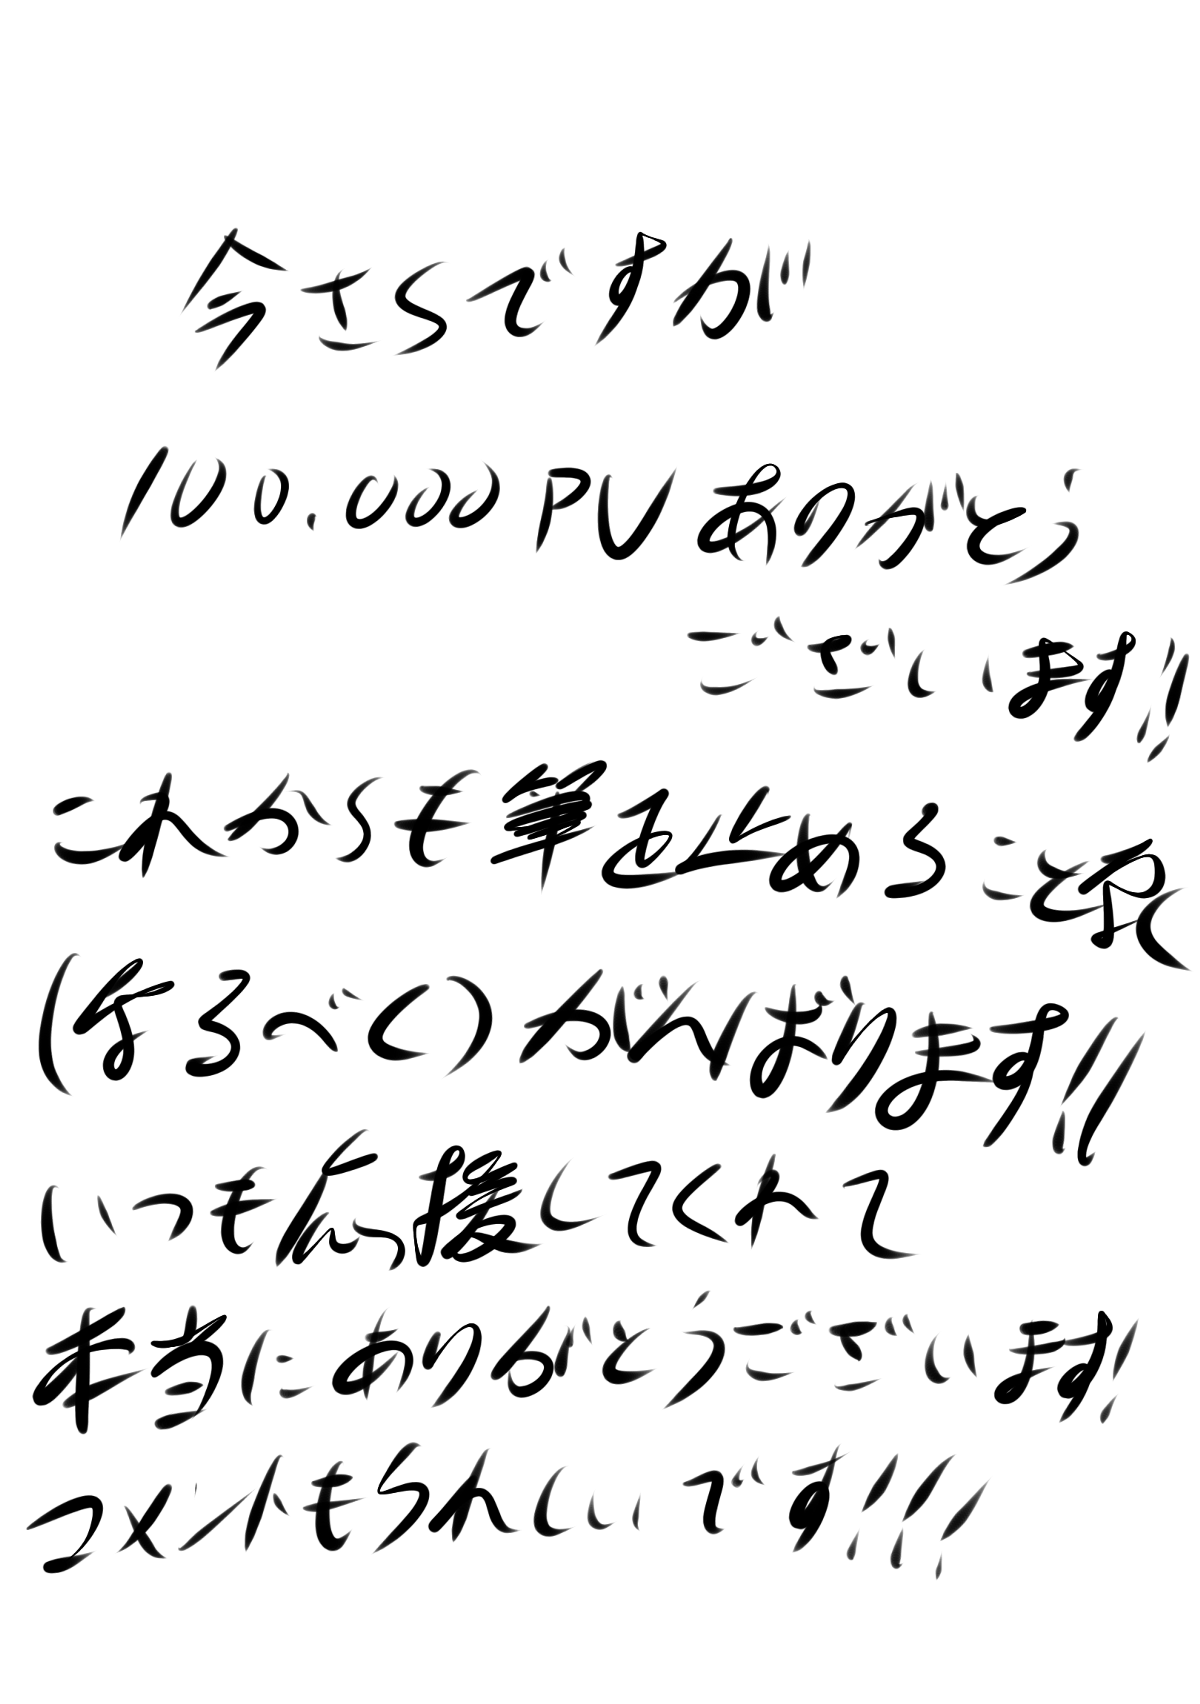 今さらですが
100.000 PV ありがとう
ございます!!
これからも筆を止めること無く
(なるべく) がんばります!!
いつも応援してくれて
本当にありがとうございます!
コメントもうれしいです!!!